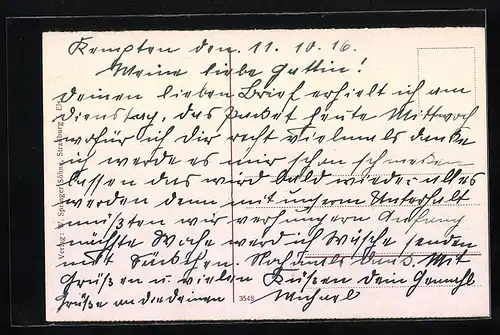 Kempten den. 11. 10. 16.
Meine liebe Gattin!
deinen lieben Brief erhielt ich am
Dienstag, das Packet heute Mittwoch
wofür ich dir recht vielmals danke
ich werde es mir schon schmecken
lassen das wird bald wieder alles
werden denn mit unserm Unterhalt
müßten wir verhungern Anfang
nächste Woche werd ich Wäsche senden
mit Nochmals Mit
Grüßen u. vielen Küßen dein Gemahl
Grüße an die deinen Michael
Verlag: W. Springer Söhne, Strassburg i. Els.
3548